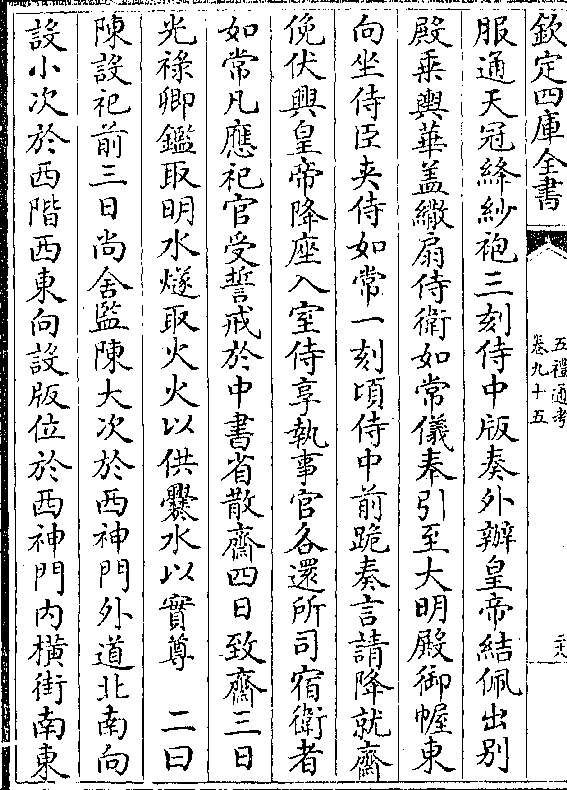 欽定四庫全書
五禮通考
卷九十五
服通天冠絳紗袍三刻侍中版奏外辦皇帝結佩出别
殿乗輿華盖繖扇侍衛如常儀奉引至大明殿御幄東
向坐侍臣夾侍如常一刻頃侍中前跪奏言請降就齋
俛伏興皇帝降座入室侍享執事官各還所司宿衛者
如常凡應祀官受誓戒於中書省散齋四日致齋三日
光祿卿鑑取明水燧取火火以供爨水以實尊　二曰
陳設祀前三日尚舍監陳大次於西神門外道北南向
設小次於西階西東向設版位於西神門内横街南東